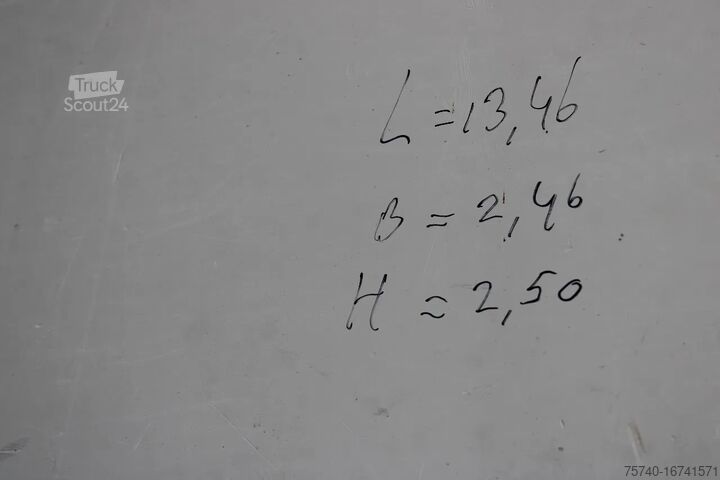 Truck
Scout24
L = 13,46
B = 2,46
H = 2,50
75740-16741571